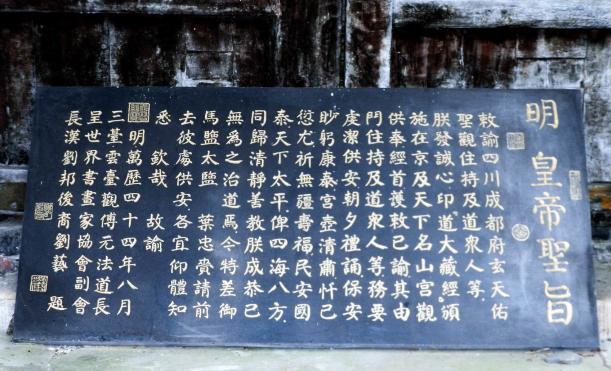 明皇帝聖旨
敕諭四川成都府玄天佑
聖觀住持及道衆人等
朕發誠心印道大藏經頒
施在京及天下名山宮觀
供奉經首護敕已諭其由
門住持及道衆人等務要
虔潔供安朝夕禮誦保安
眇躬康泰宮壺清肅忏已
愆尤祈無疆壽福民安國
泰天下太平俾四海八方
同歸清靜善教朕成恭已
無爲之治道焉今特差御
馬鹽太鹽 葉忠賫請前
去彼處供安各宜仰體知
悉 欽哉 故諭
明萬歷四十四年八月
三臺雲臺觀傅元法道長
呈世界書畫家協會副會
長漢劉邦後裔劉藝 題